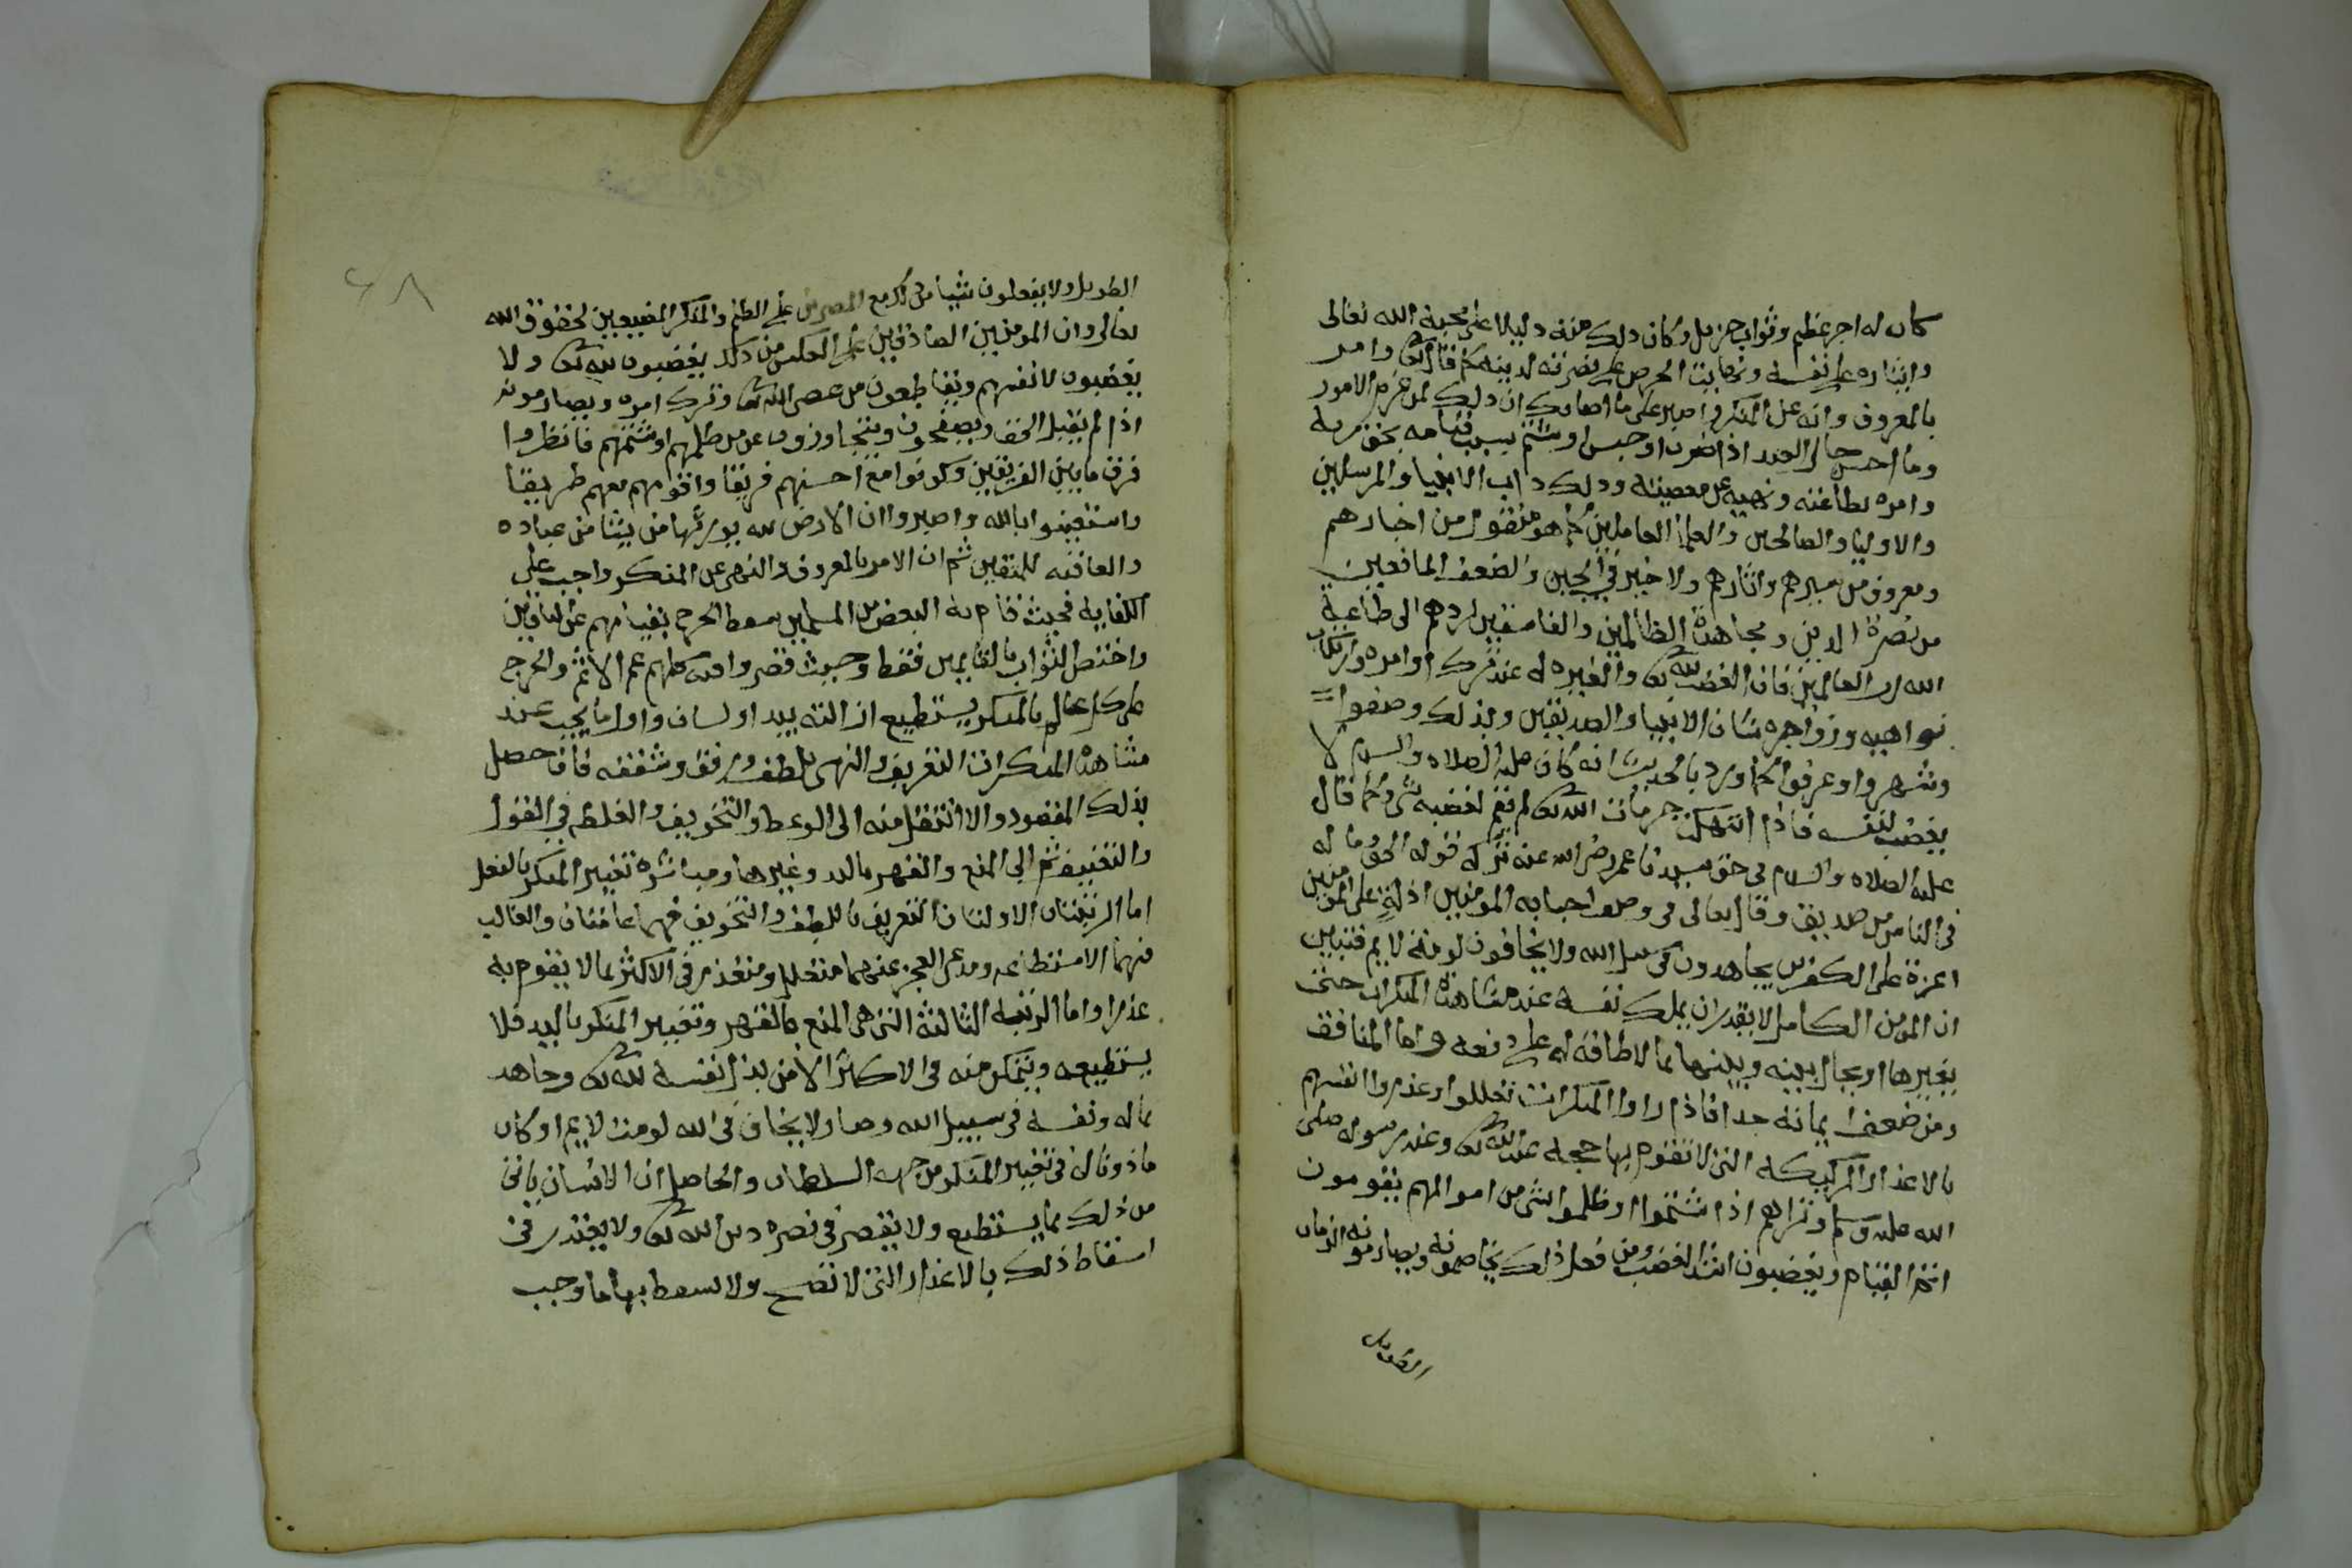 كان له اجر عظيم وثواب جزيل وكان ذلك منه دليلا على محبة الله تعالى
وايثاره على نفسه ونهاية الحرص على نصرته لدينه كما قال تعالى وامر
بالمعروف وانه عن المنكر واصبر على ما اصابك ان ذلك لمن عزم الامور
وما احسن حال العبد اذا ضرب او حبس او شتم بسبب قيامه بحق ربه
وامره بطاعته ونهيه عن معصيته وذلك داب الانبيا والمرسلين
والاوليا والصالحين والعلما العاملين كما هو منقول من اخبارهم
ومعروف من سيرهم واثارهم ولا خير في الجبن والضعف المانعين
من نصرة الدين ومجاهدة الظالمين والفاسقين لردهم الى طاعة
الله رب العالمين فان الغضب لله تعالى والغيره له عند ترك اوامره وارتكاب
نواهيه وزواجره شان الانبيا والصديقين وبذلك وصفوا
وشهروا وعرفوا كما ورد بالحديث انه كان عليه الصلاه والسلام لا
يغضب لنفسه فاذا انتهكت حرمات الله تعالى لم يقم لغضبه شي وكما قال
عليه الصلاه والسلام في حق سيدنا عمر رضي الله عنه تركه قوله الحق وما له
في الناس من صديق وقال تعالى في وصف احبابه المومنين اذلة على المومنين
اعزة على الكفرين يجاهدون في سبيل الله ولا يخافون لومة لايم فتبين
ان المومن الكامل لا يقدر ان يملك نفسه عند مشاهدة المنكرات حتى
يغيرها او يحال بينه وبينها بما لا طاقة له على دفعه واما المنافق
ومن ضعف ايمانه جدا فاذا راوا المنكرات تعللوا وعذروا انفسهم
بالاعذار الركيكه التي لا تقوم بها حجة عند الله تعالى وعند رسوله صلى
الله عليه وسلم وتراهم اذا شتموا او ظلموا بشي من اموالهم يقومون
اتم القيام ويغضبون اشد الغضب ومن فعل ذلك يخاصمونه ويصارمونه الزمان
الطويل
الطويل ولا يفعلون شيا من ذلك مع المصرين على الظلم والمنكر المضيعين لحقوق الله
تعالى وان المومنين الصادقين على العكس من ذلك يغضبون لله تعالى ولا
يغضبون لانفسهم ويقاطعون من عصى الله تعالى وترك امره ويصارمونه
اذا لم يقبل الحق ويصفحون ويتجاوزون عن من ظلمهم او شتمهم فانظروا
فرق ما بين الفريقين وكونوا مع احسنهم فريقا واقومهم معهم طريقا
واستعينوا بالله واصبروا ان الارض لله يورثها من يشا من عباده
والعاقبه للمتقين ثم ان الامر بالمعروف والنهي عن المنكر واجب على
الكفايه فحيث قام به البعض من المسلمين سقط الحرج بقيامهم عن الباقين
واختص الثواب بالقايمين فقط وحيث قصروا فيه كلهم عم الاثم والحرج
على كل عالم بالمنكر يستطيع ازالته بيد او لسان واول ما يجب عند
مشاهدة المنكرات التعريف والنهي بلطف ورفق وشفقه فان حصل
بذلك المقصود والا انتقل منه الى الوعظ والتخويف والغلظه في القول
والتعنيف ثم الي المنع والقهر باليد وغيرها ومباشرة تغيير المنكر بالفعل
اما الرتبتان الاولتان التعريف باللطف والتخويف فهما عامتان والغالب
فيهما الاستطاعه ومدعي العجز عنهما متعلل ومتعذر في الاكثر بما لا يقوم به
عذرا واما الرتبه الثالثة التي هي المنع بالقهر وتغيير المنكر باليد فلا
يستطيعه ويتمكن منه في الاكثر الا من بذل نفسه لله تعالى وجاهد
بماله ونفسه في سبيل الله وصار لا يخاف في الله لومة لايم او كان
ماذونا له في تغيير المنكر من جهة السلطان والحاصل ان الانسان ياتي
من ذلك بما يستطيع ولا يقصر في نصرة دين الله تعالى ولا يعتذر في
اسقاط ذلك بالاعذار التي لا تصح ولا يسقط بها ما وجب